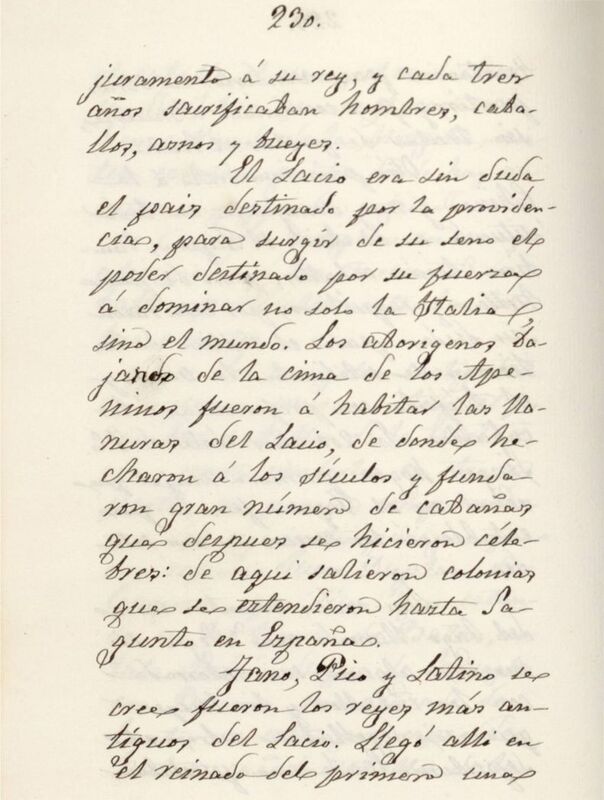 230.
juramento á su rey, y cada tres
años sacrificaban hombres, caba-
llos, asnos y bueyes.
El Lacio era sin duda
el pais destinado por la providen-
cia, para surgir de su seno el
poder destinado por su fuerza
á dominar no solo la Italia,
sino el mundo. Los aborigenes ba-
jando de la cima de los Ape-
ninos fueron á habitar las lla-
nuras del Lacio, de donde he-
charon á los sículos y funda
ron gran número de cabañas
que despues se hicieron céle-
bres: de aqui salieron colonias
que se estendieron hasta Sa
gunto en España.
Jano, Pico y Latino se
cree fueron los reyes más an-
tiguos del Lacio. Llegó alli en
el reinado del primero una